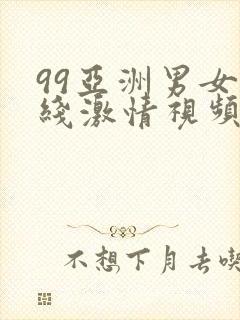 99亞洲男女
綫激情視頻
不想下月去喫